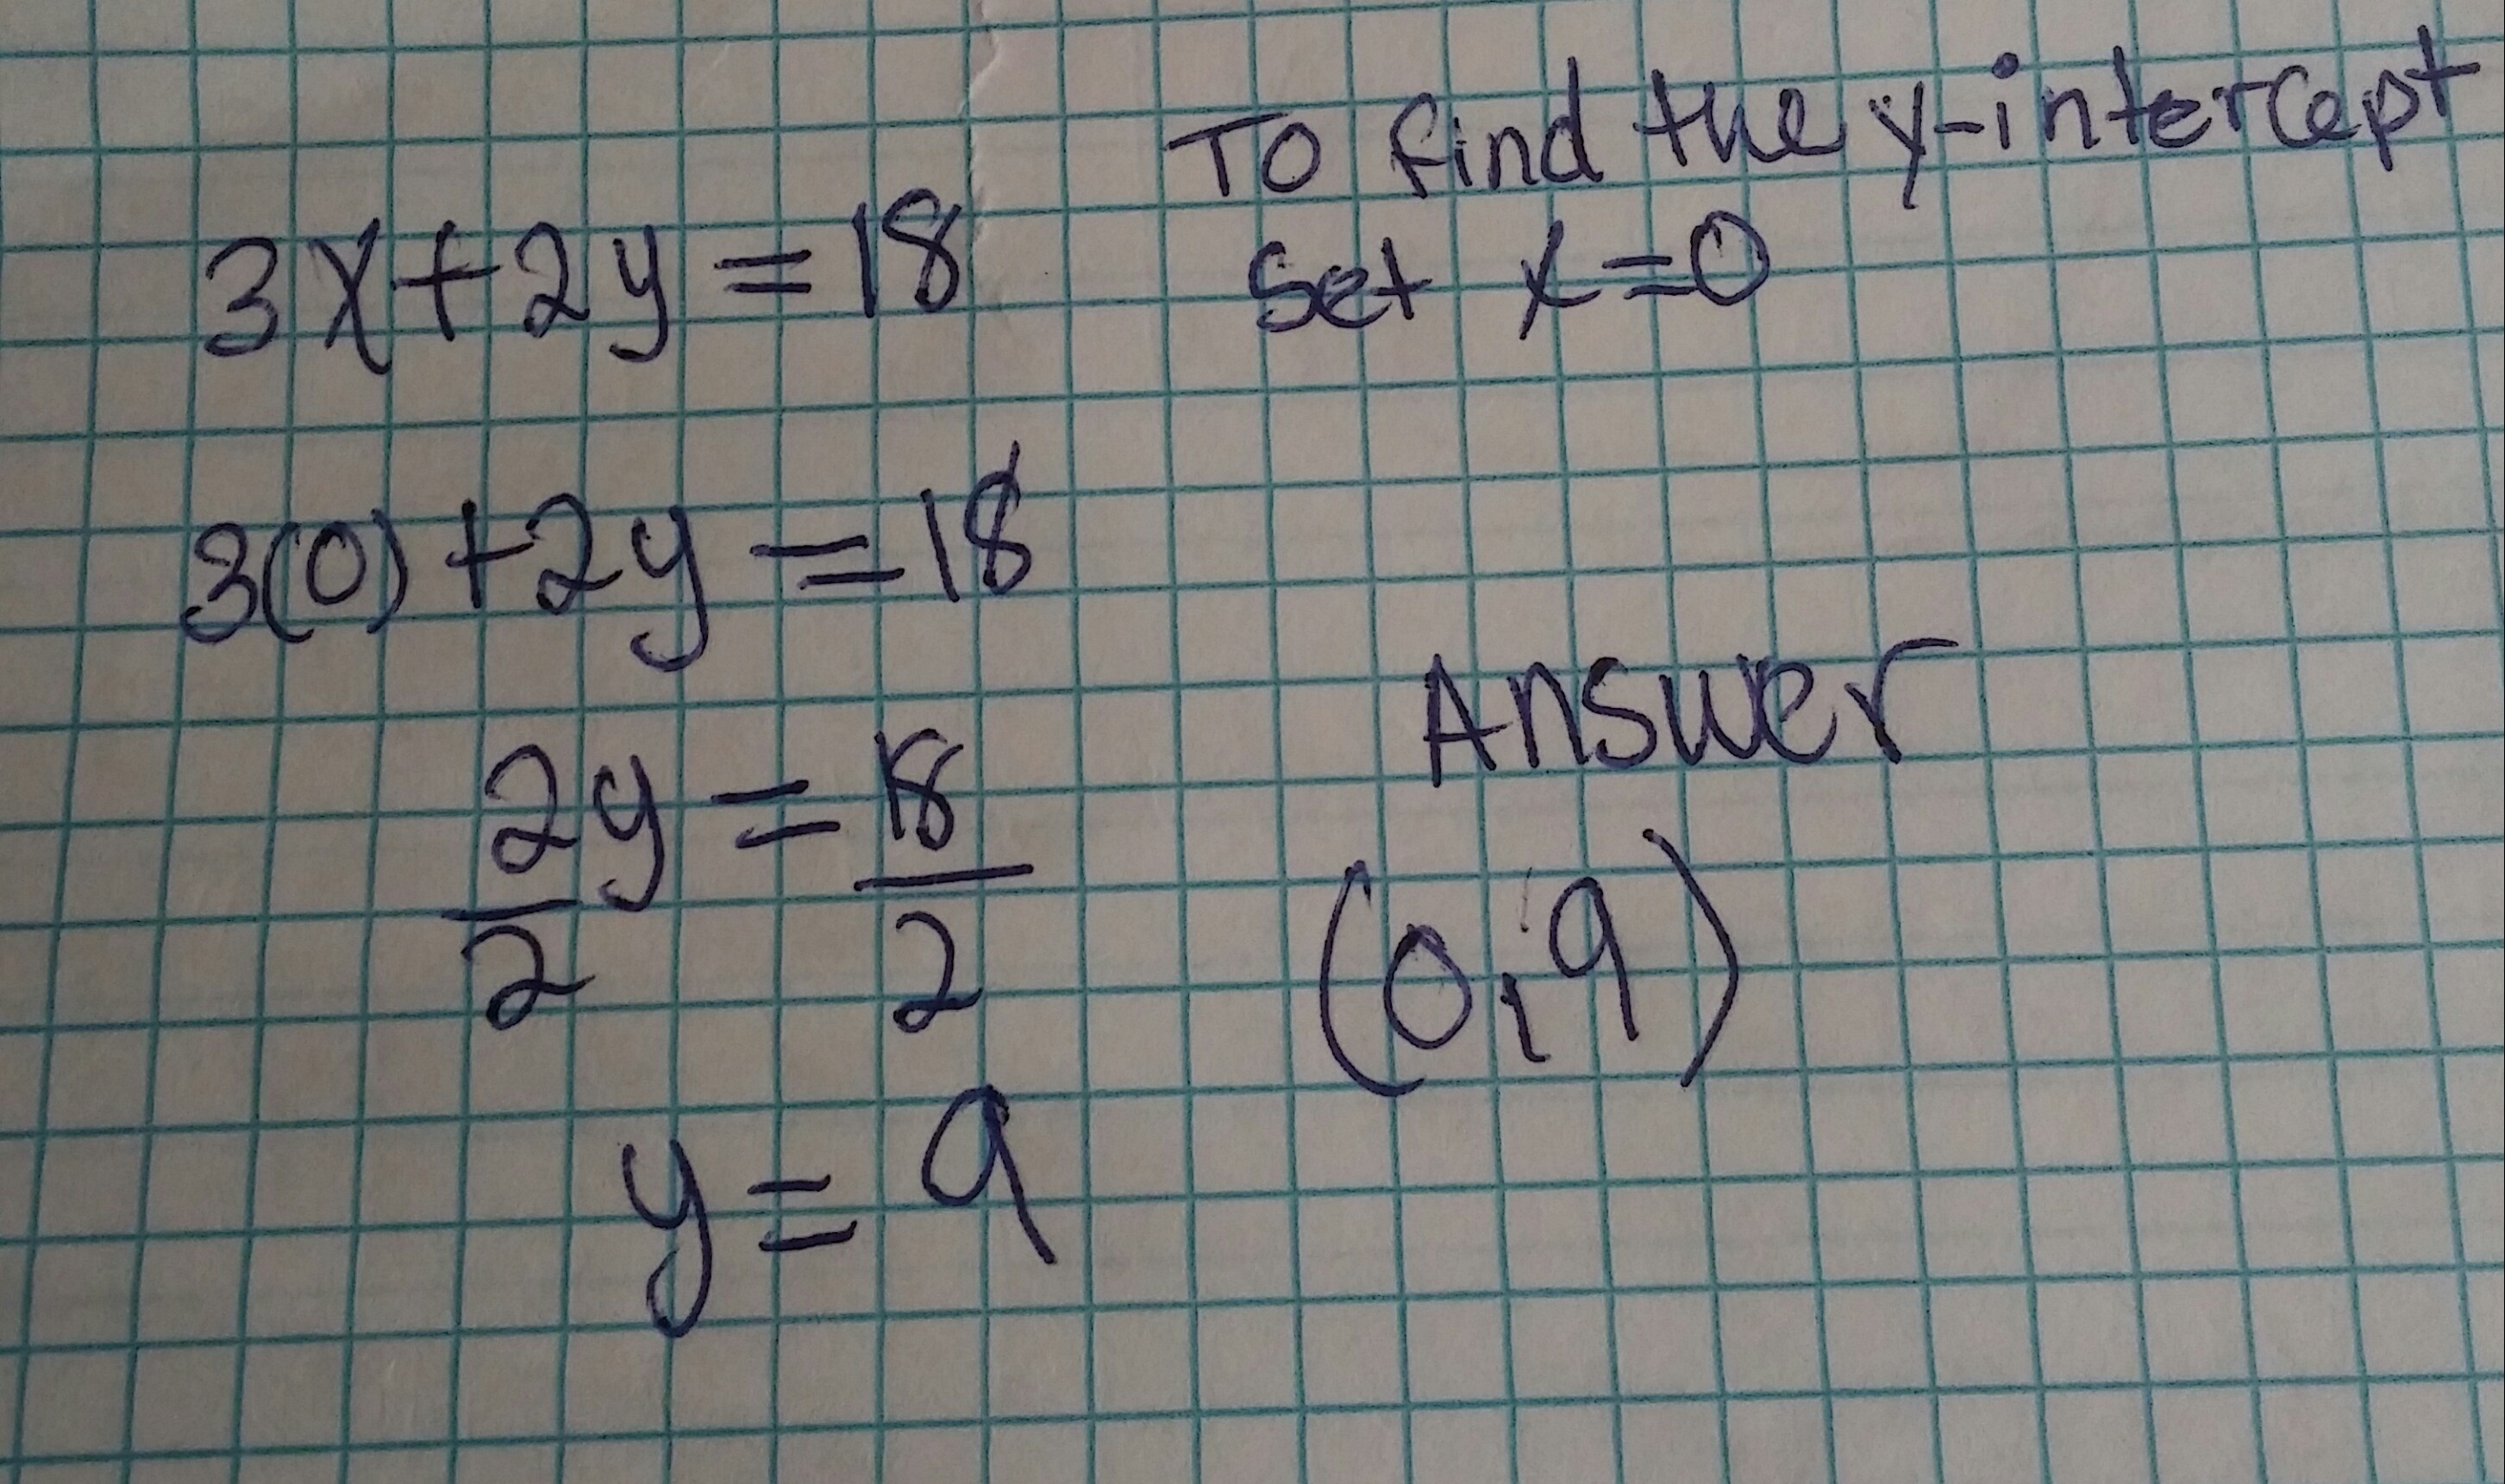 To find the y-intercept
Set x=0
3x+2y=18
3(0)+2y=18
2y=18
2 2
y=9
Answer
(0,9)